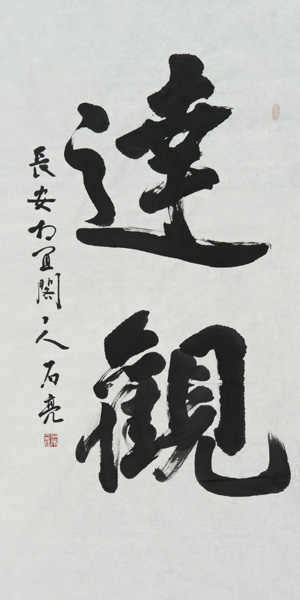 達觀
長安相宜閣主人石亮